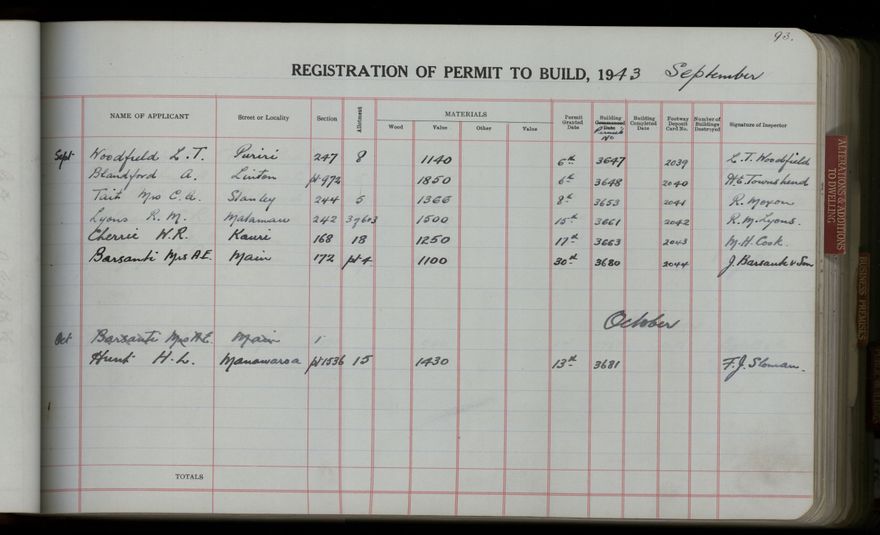 93.
REGISTRATION OF PERMIT TO BUILD, 1943 September
NAME OF APPLICANT Street or Locality Section Allotment MATERIALS Wood Value Other Value Permit Granted Date Building Commenced Date Permit No Building Completed Date Footway Deposit Card No. Number of Buildings Destroyed Signature of Inspector
Sept Woodfield L. T. Puriri 247 8 1140 6th 3647 2039 L. T. Woodfield
Blandford A. Linton pt 972 1850 6th 3648 2040 H. E. Townshend
Tait Mrs C. A. Stanley 244 5 1366 8th 3653 2041 R. Moxon
Lyons R. M. Matamau 242 1500 15th 3661 2042 R. M. Lyons.
Cherrie W. R. Kauri 168 18 1250 17th 3663 2043 M. H. Cook.
Barsanti Mrs A. E. Main 172 pt 4 1100 30th 3680 2044 J. Barsanti & Son
October
Oct Barsanti Mrs A. E. Main 1
Hunt H. L. Manawaroa pt 1536 15 1430 13th 3681 F. J. Sloman.
TOTALS
ALTERATIONS & ADDITIONS TO DWELLING
BUSINESS PREMISES